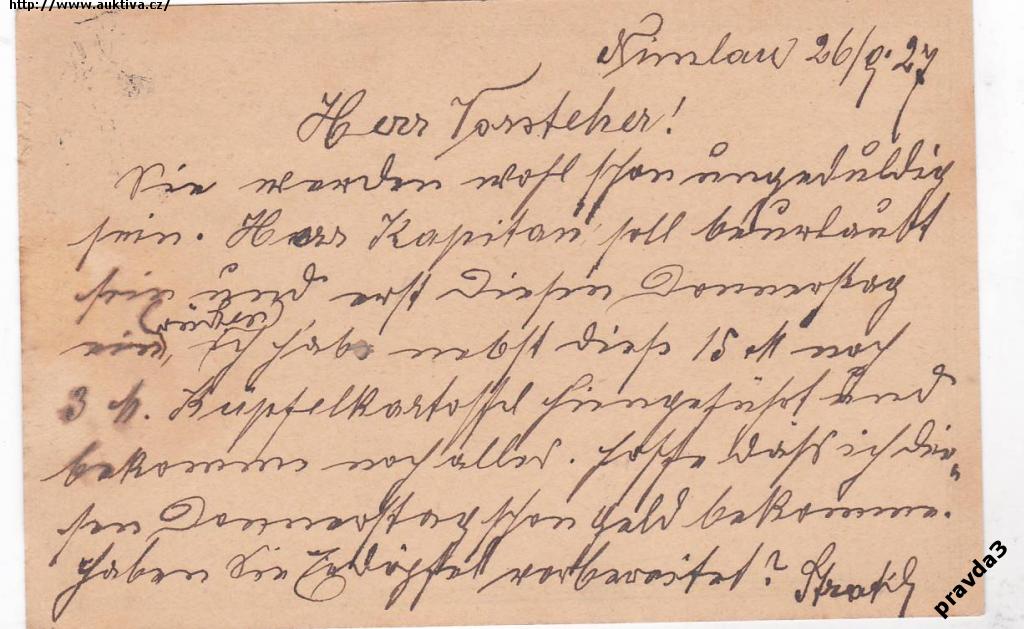 http://www.auktiva.cz/
Nimlau 26/9. 27
Herr Vorsteher!
Sie werden wohl schon ungeduldig
sein. Herr Kapitän soll beurlaubt
sein und erst diesen Donnerstag
einrücken, ich habe nebst dieß 15 M noch
3 M. Küpfelkartoffel hingeführt und
bekomme noch alles. Hoffe daß ich die-
sen Donnerstag schon Geld bekomme.
Haben Sie Erdäpfel vorbereitet?
pravda3